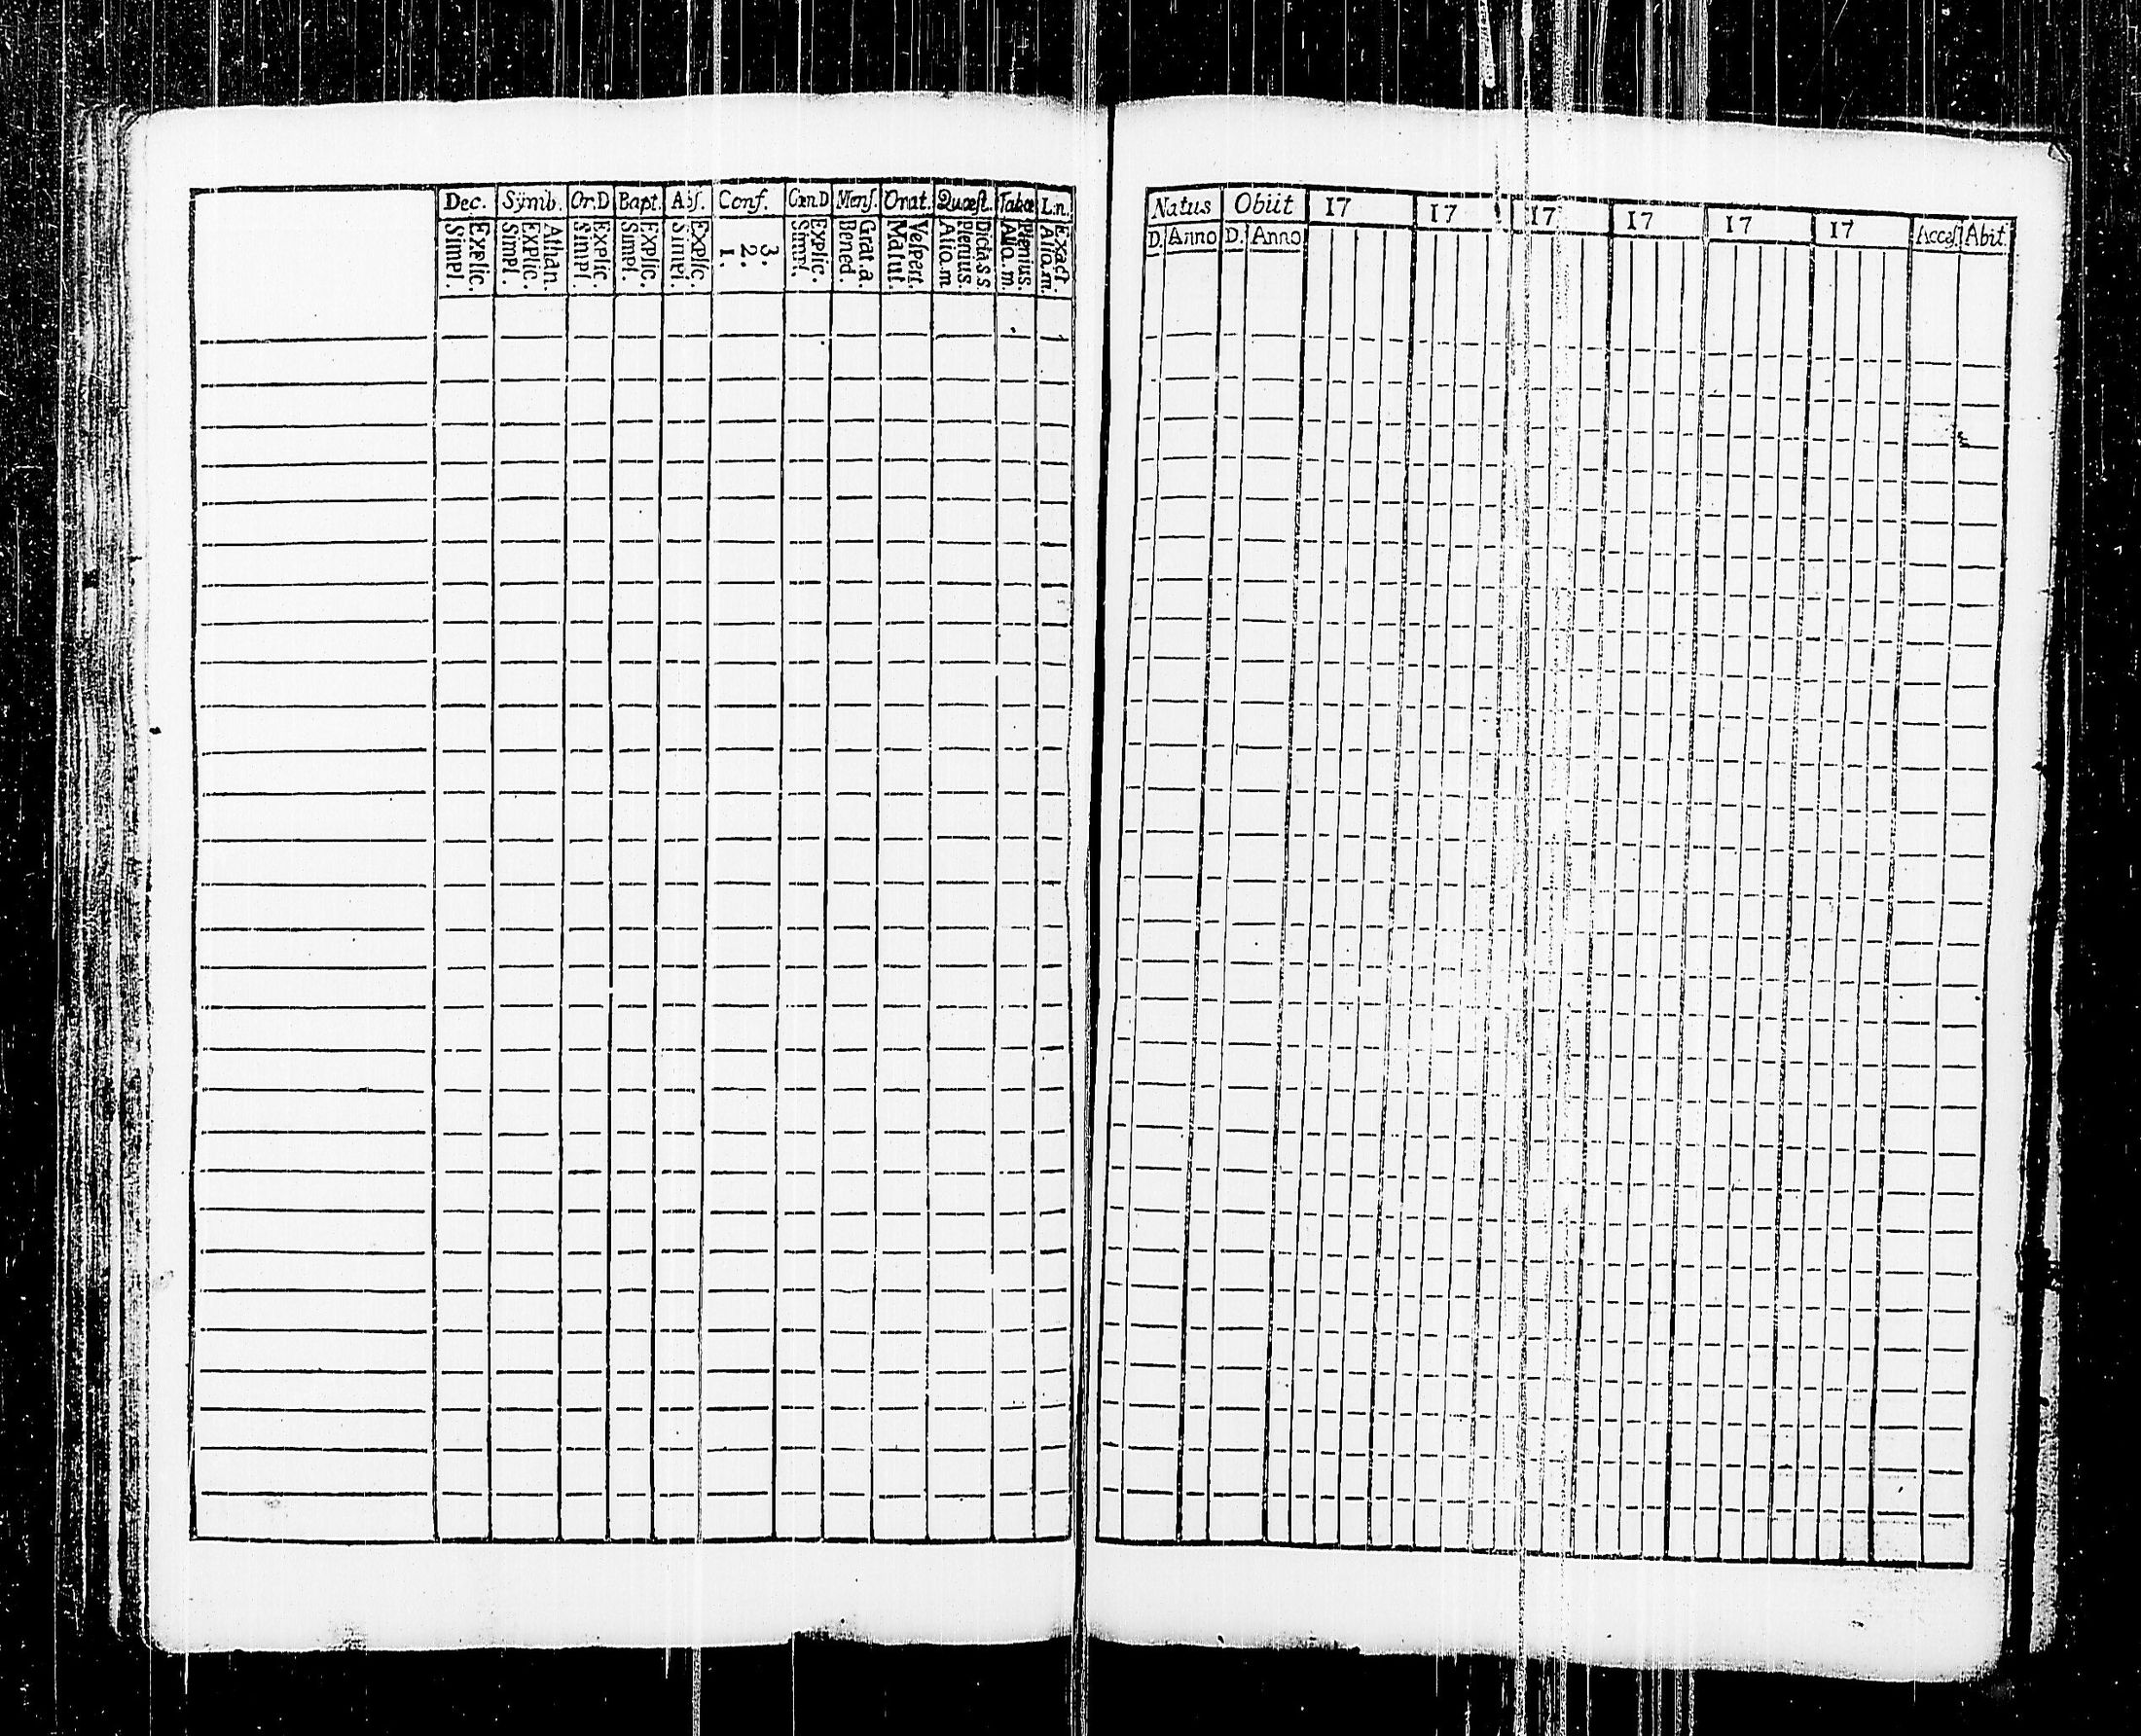 Dec. Symb. Or.D Bapt. Abſ. Conf. Cœn.D Menſ. Orat. Quæſt. Tabœ L.n.
Explic. Simpl.
Athan. Explic. Simpl.
Explic. Simpl.
Explic. Simpl.
Explic. Simpl.
3. 2. 1.
Explic. Simpl.
Grat.a. Bened.
Veſpert. Matut.
Dicta.S.S Plenius. Alia.m
Plenius. Alia.m
Exact. Alia.m.
Natus Obiit 17 17 17 17 17 17 Acceſ. Abit
D. Anno D. Anno